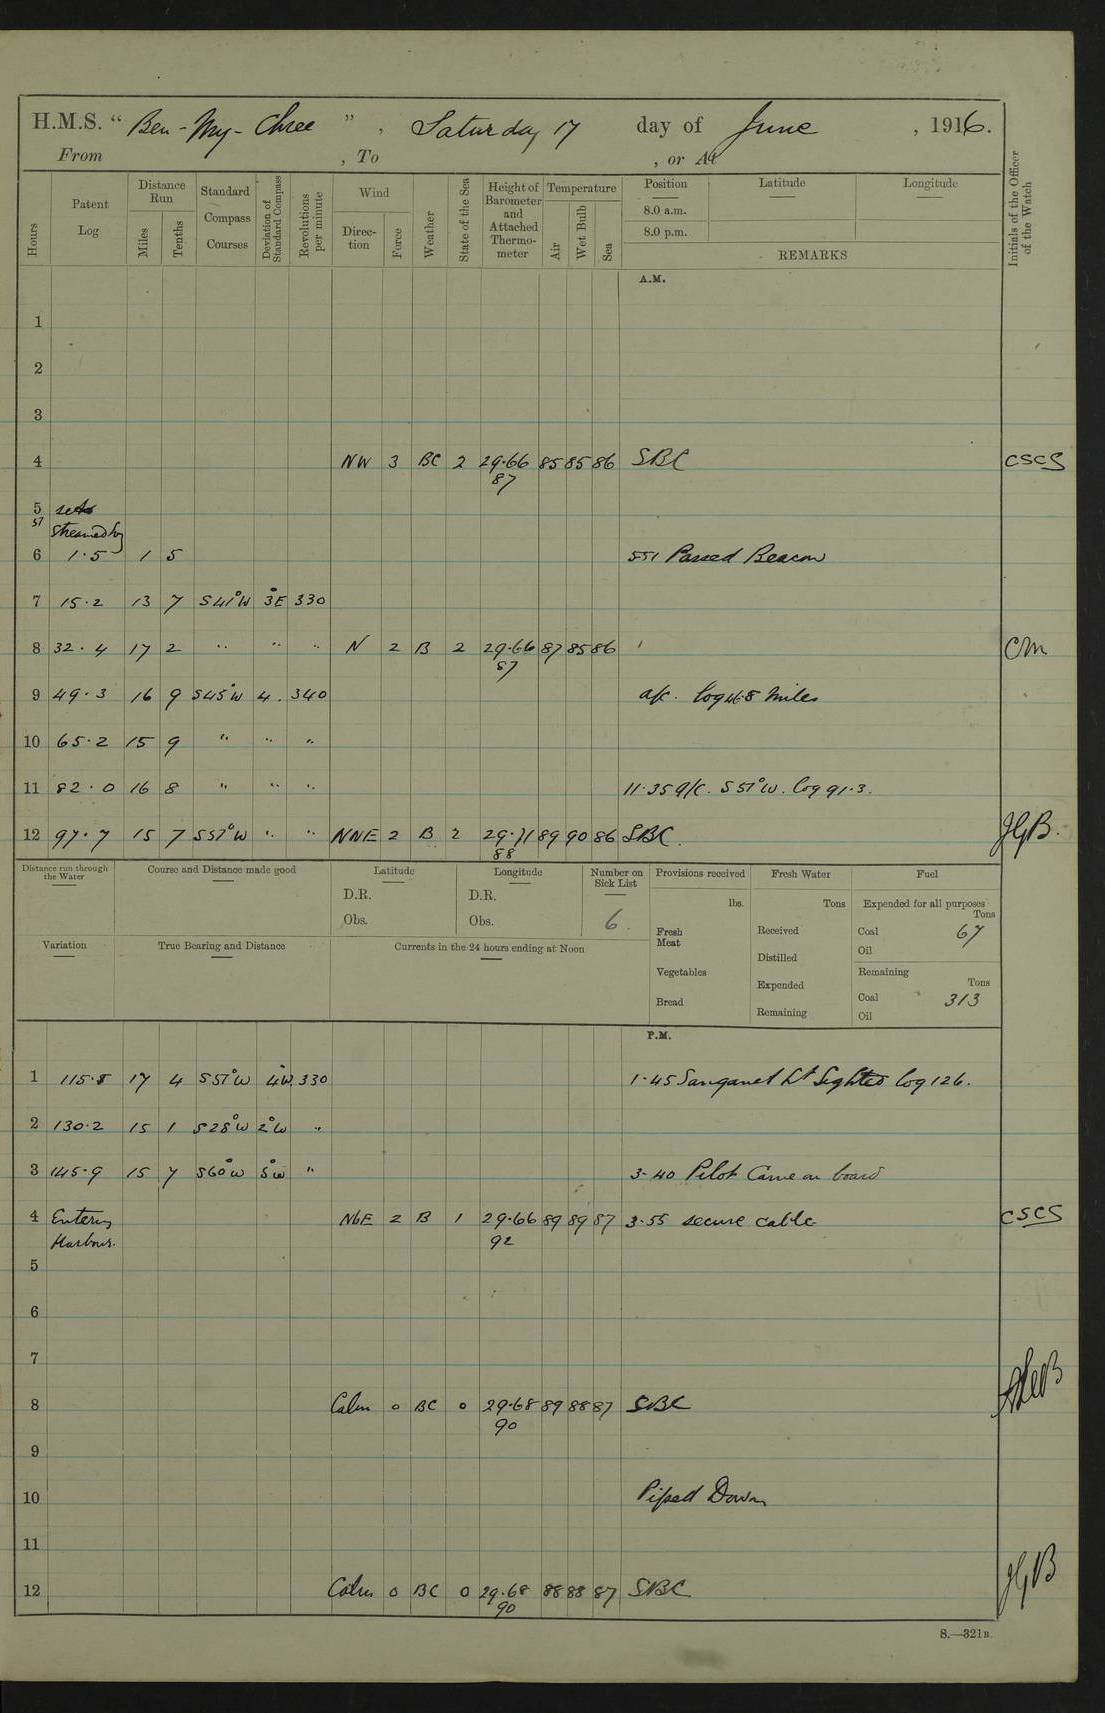 H.M.S. “ Ben-My-Chree ” , Saturday 17 day of June , 1916.
From , To , or At
Hours Patent Log Distance Run Miles Tenths Standard Compass Courses Deviation of Standard Compass Revolutions per minute Wind Direction Force Weather State of the Sea Height of Barometer and Attached Thermometer Temperature Air Wet Bulb Sea Position Latitude Longitude Initials of the Officer of the Watch
8.0 a.m.
8.0 p.m.
REMARKS
A.M.
1
2
3
4 NW 3 BC 2 29.66 85 85 86 SBC CSCS
87
5 set
51 Streamed log
6 1.5 1 5 551 Passed Beacon
7 15.2 13 7 S41°W 3°E 330
8 32.4 17 2 " " " N 2 B 2 29.66 87 85 86 CM
87
9 49.3 16 9 S45°W 4. 340 a/c. log 46.8 miles
10 65.2 15 9 " " "
11 82.0 16 8 " " " 11.35 a/c. S 57°W. log 91.3.
12 97.7 15 7 S57°W " " NNE 2 B 2 29.71 89 90 86 SBC. JGB.
88
Distance run through the Water Course and Distance made good Latitude Longitude Number on Sick List Provisions received Fresh Water Fuel
D.R. D.R. lbs. Tons Expended for all purposes Tons
Obs. Obs. 6. Fresh Meat Received Coal 67
Oil
Variation True Bearing and Distance Currents in the 24 hours ending at Noon Distilled
Vegetables Remaining Tons
Expended
Bread Coal 313
Remaining Oil
P.M.
1 115.8 17 4 S57°W 4°W 330 1.45 Sanganeb Lt Sighted log 126.
2 130.2 15 1 S28°W 2°W "
3 145.9 15 7 S60°W 5°W " 3-40 Pilot Came on board
4 Entering NbE 2 B 1 29.66 89 89 87 3.55 secure cable CSCS
Harbour. 92
5
6
7
8 Calm 0 BC 0 29.68 89 88 87 SBC
90
9
10 Piped Down
11
12 Calm 0 BC 0 29.68 88 88 87 SBC JGB
90
S.—321B.